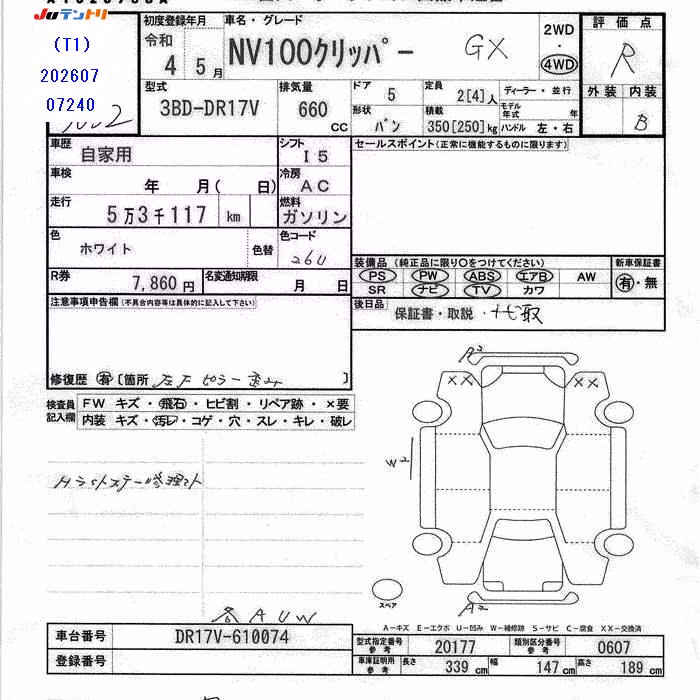 JUテントリ
(T1)
202607
07240
初度登録年月
令和
4 5月
車名・グレード
NV100クリッパー GX
2WD
・
4WD
評価点
R
外装 内装
B
型式
3BD-DR17V
排気量
660
CC
ドア
5
形状
バン
定員
2[4]人
積載
350[250]kg
ディーラー・並行
モデル年式 年
ハンドル 左・右
車歴
自家用
シフト
I5
セールスポイント(正常に機能するものに限ります)
車検
年 月( 日)
冷房
AC
走行
5万3千117 km
燃料
ガソリン
色
ホワイト
色替
色コード
26U
装備品(純正品に限り○をつけてください)
新車保証書
PS PW ABS エアB AW
SR ナビ TV カワ
有・無
R券
7,860円
名変通知期限
月 日
後日品
保証書・取説・ナビ取
注意事項申告欄(不具合内容等は具体的に記入して下さい)
修復歴 有 [箇所 ]
検査員
記入欄
FW キズ・飛石・ヒビ割・リペア跡・×要
内装 キズ・汚レ・コゲ・穴・スレ・キレ・破レ
A2
XX XX
W2
スペア
A2
各AUW
A-キズ E-エクボ U-凹み W-補修跡 S-サビ C-腐食 XX-交換済
車台番号
DR17V-610074
登録番号
型式指定番号
参考
20177
類別区分番号
参考
0607
車庫証明用
参考
長さ 339cm 幅 147cm 高さ 189cm